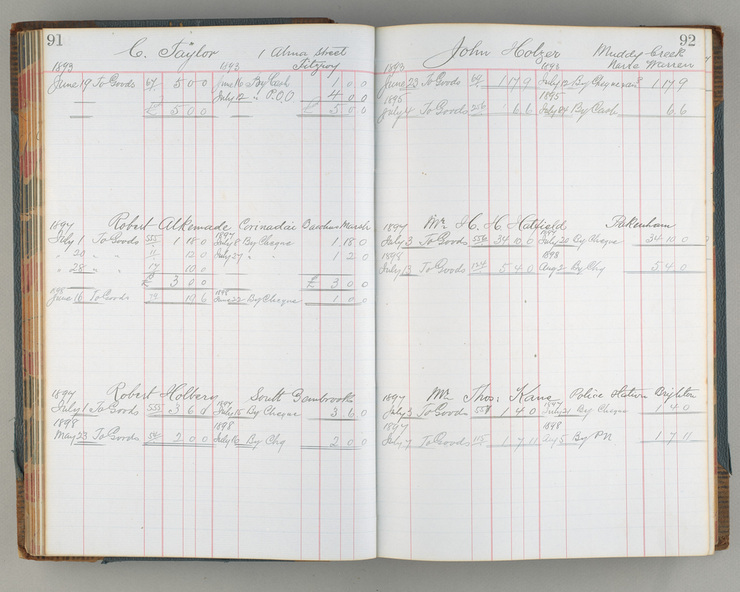 91
C. Taylor 1 Alma Street
Fitzroy
1893 1893
June 19 To Goods 64 5 0 0 June 16 By Cash 1 0 0
July 12 " P.O.O 4 0 0
£ 5 0 0 £ 5 0 0
1897 Robert Alkemade Corinadia Bacchus Marsh
July 1 To Goods 555 1 18 0 July 8 By Cheque 1 18 0
" 20 " " 12 0 July 27 " 1 2 0
" 28 " " 17 10 0
£ 3 0 0 £ 3 0 0
1898 1898
June 16 To Goods 19 6 June 22 By Cheque 1 0 0
1897 Robert Holberg South Gembrook
July 1 To Goods 555 3 6 0 July 15 By Cheque 3 6 0
1898 1898
May 23 To Goods 2 0 0 July 6 By Chq 2 0 0
92
John Holzer Muddy Creek
Narre Warren
1893 1893
June 23 To Goods 64 1 17 9 July 12 By Cheque 1 17 9
1895 1895
July 4 To Goods 216 6 6 July 24 By Cash 6 6
1897 Mr. H. H. Hatfield Pakenham
July 3 To Goods 556 34 10 0 July 20 By Cheque 34 10 0
1898 1898
July 13 To Goods 5 4 0 Aug 2 By Chq 5 4 0
1897 Mr Thos. Kane Police Station Brighton
July 3 To Goods 557 1 4 0 July 21 By Cheque 1 4 0
1897 1898
July 7 To Goods 1 7 11 By PN 1 7 11